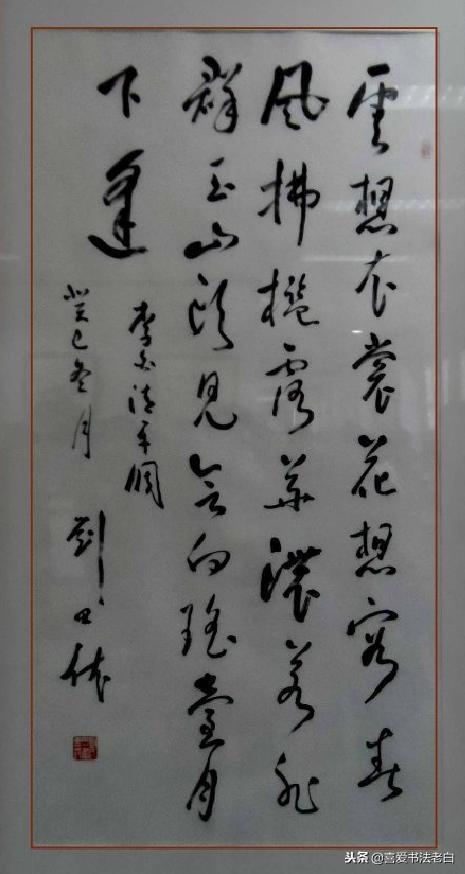 雲想衣裳花想容春
風拂檻露華濃若非
群玉山頭見會向瑤臺月
下逢
李白清平調
癸巳冬月
劉
头条@喜爱书法老白